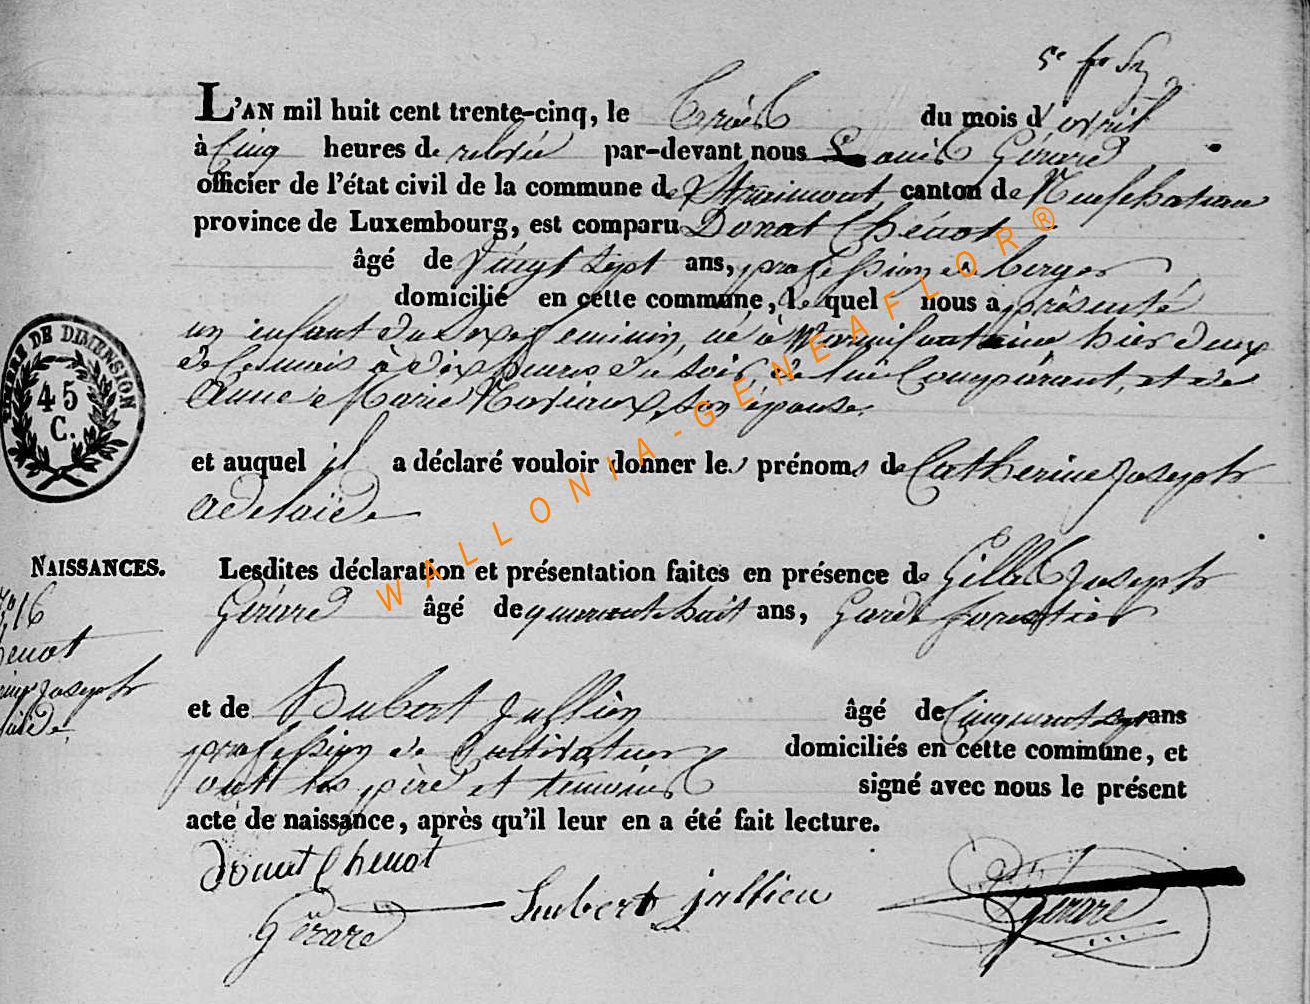 L'AN mil huit cent trente-cinq, le trois du mois d'avril
à cinq heures de relevée par-devant nous Louis Gérard
officier de l'état civil de la commune de Straimont, canton de Neufchateau
province de Luxembourg, est comparu Donat Chénot
âgé de vingt sept ans, profession de berger
domicilié en cette commune, lequel nous a présenté
un enfant du sexe feminin, né à Warmifontaine hier deux
de ce mois à dix heures du soir, de lui Comparant, et de
Anne Marie son épouse,
et auquel il a déclaré vouloir donner les prénoms de Catherine Joseph
Adelaïde
TIMBRE DE DIMENSION
45
C.
NAISSANCES.
No 16
henot
Joseph
Lesdites déclaration et présentation faites en présence de Gilles Joseph
Gérard âgé de quarante huit ans, Garde forestier
et de Hubert Jallien âgé de Cinquante sept ans
profession de Cultivateur domiciliés en cette commune, et
ont les père et temoins signé avec nous le présent
acte de naissance, après qu'il leur en a été fait lecture.
Donat Chenot
Gérard
hubert jallieu
Gérard
WALLONIA-GENEAFLOR®